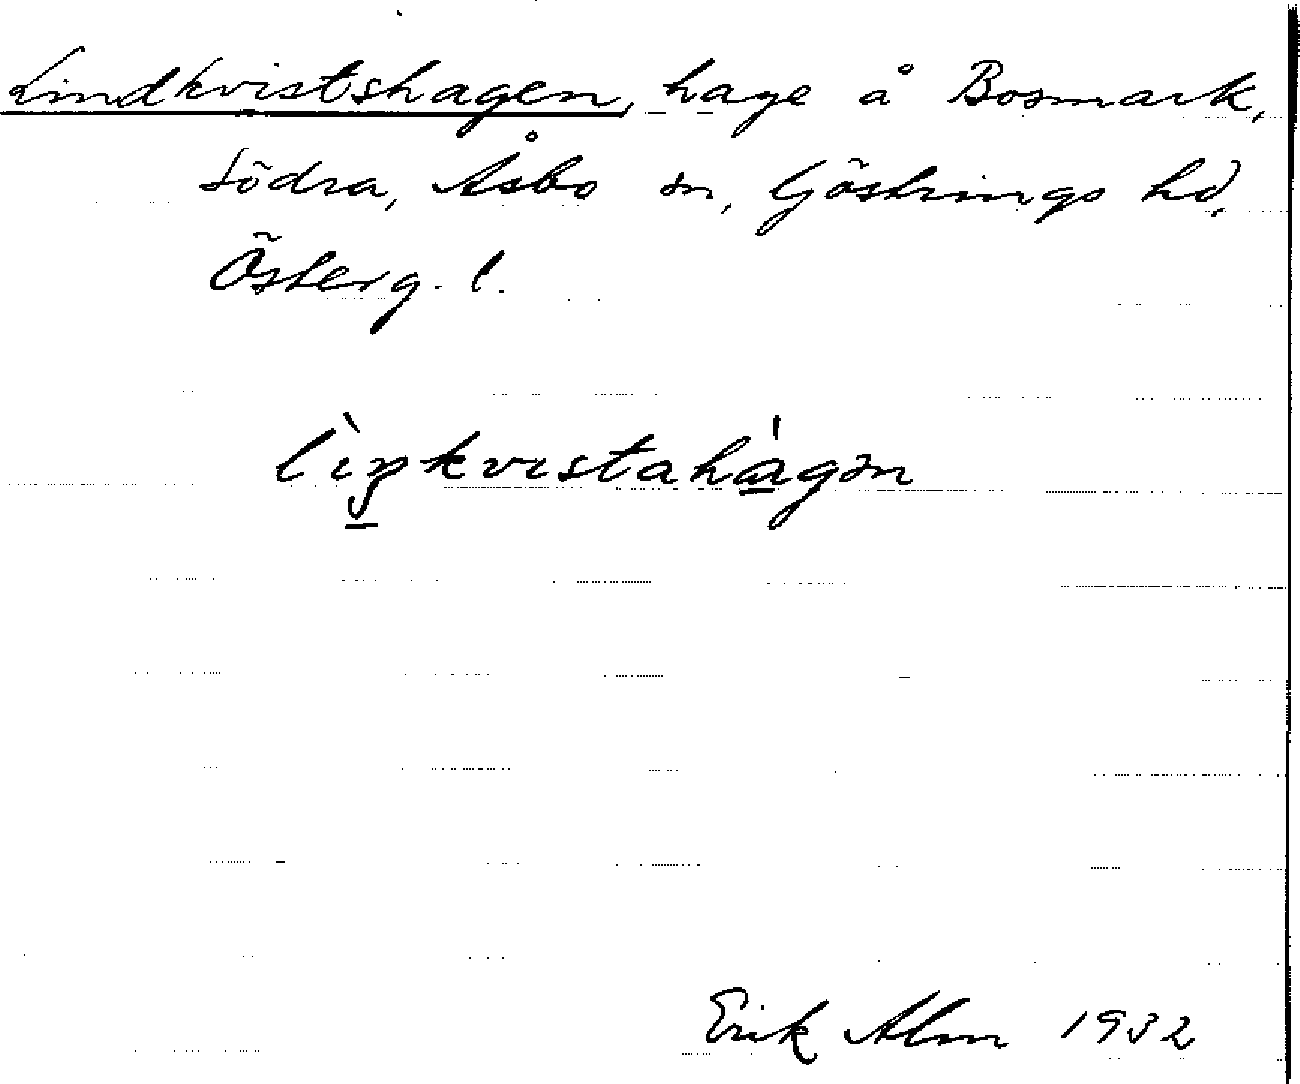 Lindkvistshagen, hage å Bosmark,
Södra, Åsbo sn, Göstrings hd,
Österg. l.
lìŋkvɪstahàgən
Erik Alm 1932